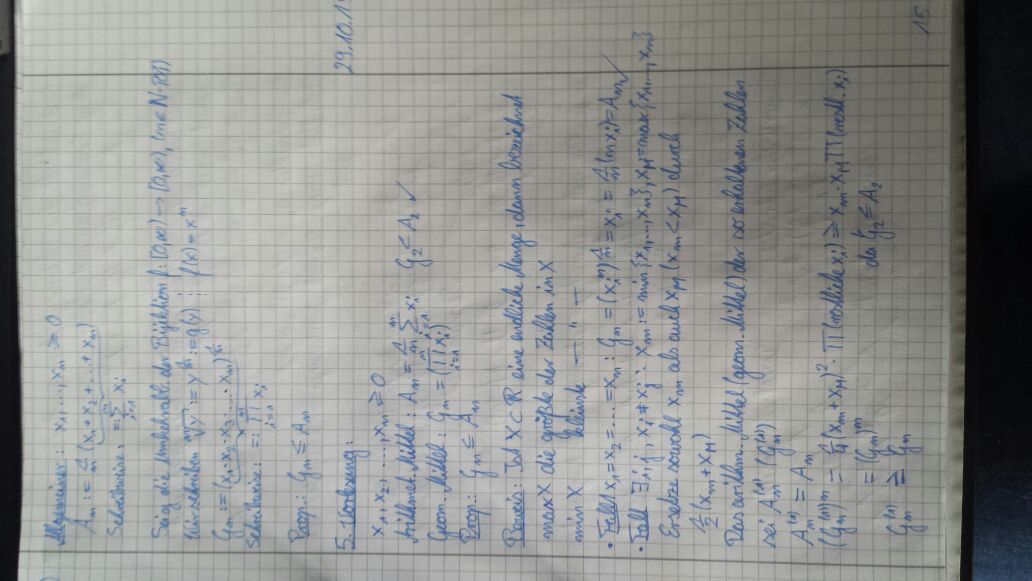 Allgemeiner: x₁,...,xₙ ≥ 0
Aₙ := 1/n (x₁+x₂+...+xₙ)
Schreibweise: =: Σ xᵢ
i=1
Sei g die Umkehrabb. der Bijektion f: [0,∞) → [0,∞), (n∈N
Wir schreiben ⁿ√y := y^(1/n) := g(y) ; f(x) = xⁿ
Gₙ := (x₁·x₂·x₃·...·xₙ)^(1/n)
Schreibweise: =: ∏ xᵢ
i=1
Prop.: Gₙ ≤ Aₙ
5. Vorlesung: 29.10.1
x₁,x₂,...,xₙ ≥ 0
Arithmet. Mittel: Aₙ = 1/n Σⁿᵢ₌₁ xᵢ G₂ ≤ A₂ ✓
Geom. Mittel: Gₙ = (∏ⁿᵢ₌₁ xᵢ)
Prop.: Gₙ ≤ Aₙ
Beweis: Ist X⊂R eine endliche Menge, dann bezeichnet
max X die größte der Zahlen in X
min X kleinste — " —
• Fall x₁=x₂=...=xₙ: Gₙ = (xᵢⁿ)^(1/n) = xᵢ = 1/n (n xᵢ) = Aₙ ✓
• Fall ∃ i,j, xᵢ≠xⱼ: xₘ := min{x₁,...,xₙ}, x_M = max{x₁,...,xₙ}
Ersetze sowohl xₘ als auch x_M (xₘ < x_M) durch
1/2 (xₘ+x_M)
Das arithm. Mittel (geom. Mittel) der so erhaltenen Zahlen
sei Aₙ⁽¹⁾ (Gₙ⁽¹⁾)
Aₙ⁽¹⁾ = Aₙ
(Gₙ⁽¹⁾)ⁿ = 1/4 (xₘ+x_M)² · ∏(restliche xᵢ) ≥ xₘ·x_M ∏(restl. xᵢ)
= (Gₙ)ⁿ da G₂ ≤ A₂
Gₙ⁽¹⁾ ≥ Gₙ
15